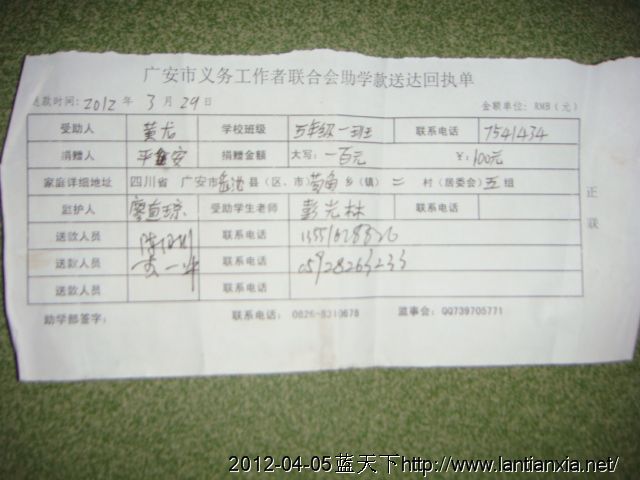 广安市义务工作者联合会助学款送达回执单
送款时间: 2012 年 3 月 29 日 金额单位: RMB (元)
受助人 黄龙 学校班级 五年级一班 联系电话 7541434
捐赠人 平鑫安 捐赠金额 大写: 一百元 ¥: 100元
家庭详细地址 四川省 广安市岳池县(区、市)苟角乡(镇) 二 村(居委会)五组
监护人 受助学生老师 彭光林 联系电话
送款人员 联系电话
送款人员 联系电话
送款人员 联系电话
正联
助学部签字: 联系电话: 0826-8310678 监事会: QQ739705771
2012-04-05蓝天下http://www.lantianxia.net/